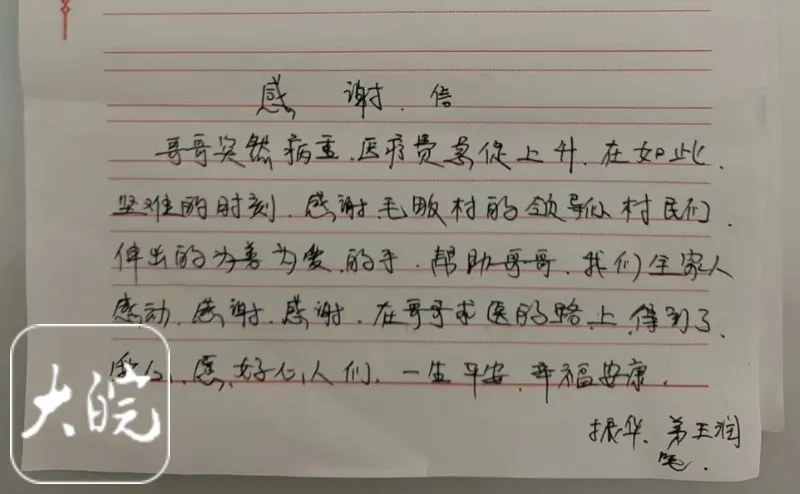 感谢信
哥哥突然病重、医疗费急促上升、在如此、
坚难的时刻、感谢毛畈村的领导们村民们、
伸出的为善为爱、的手、帮助哥哥、我们全家人
感动、感谢、感谢、在哥哥求医的路上、得到了、
愿、好心人们、一生平安、幸福安康、
振华、弟王润
笔、
大皖